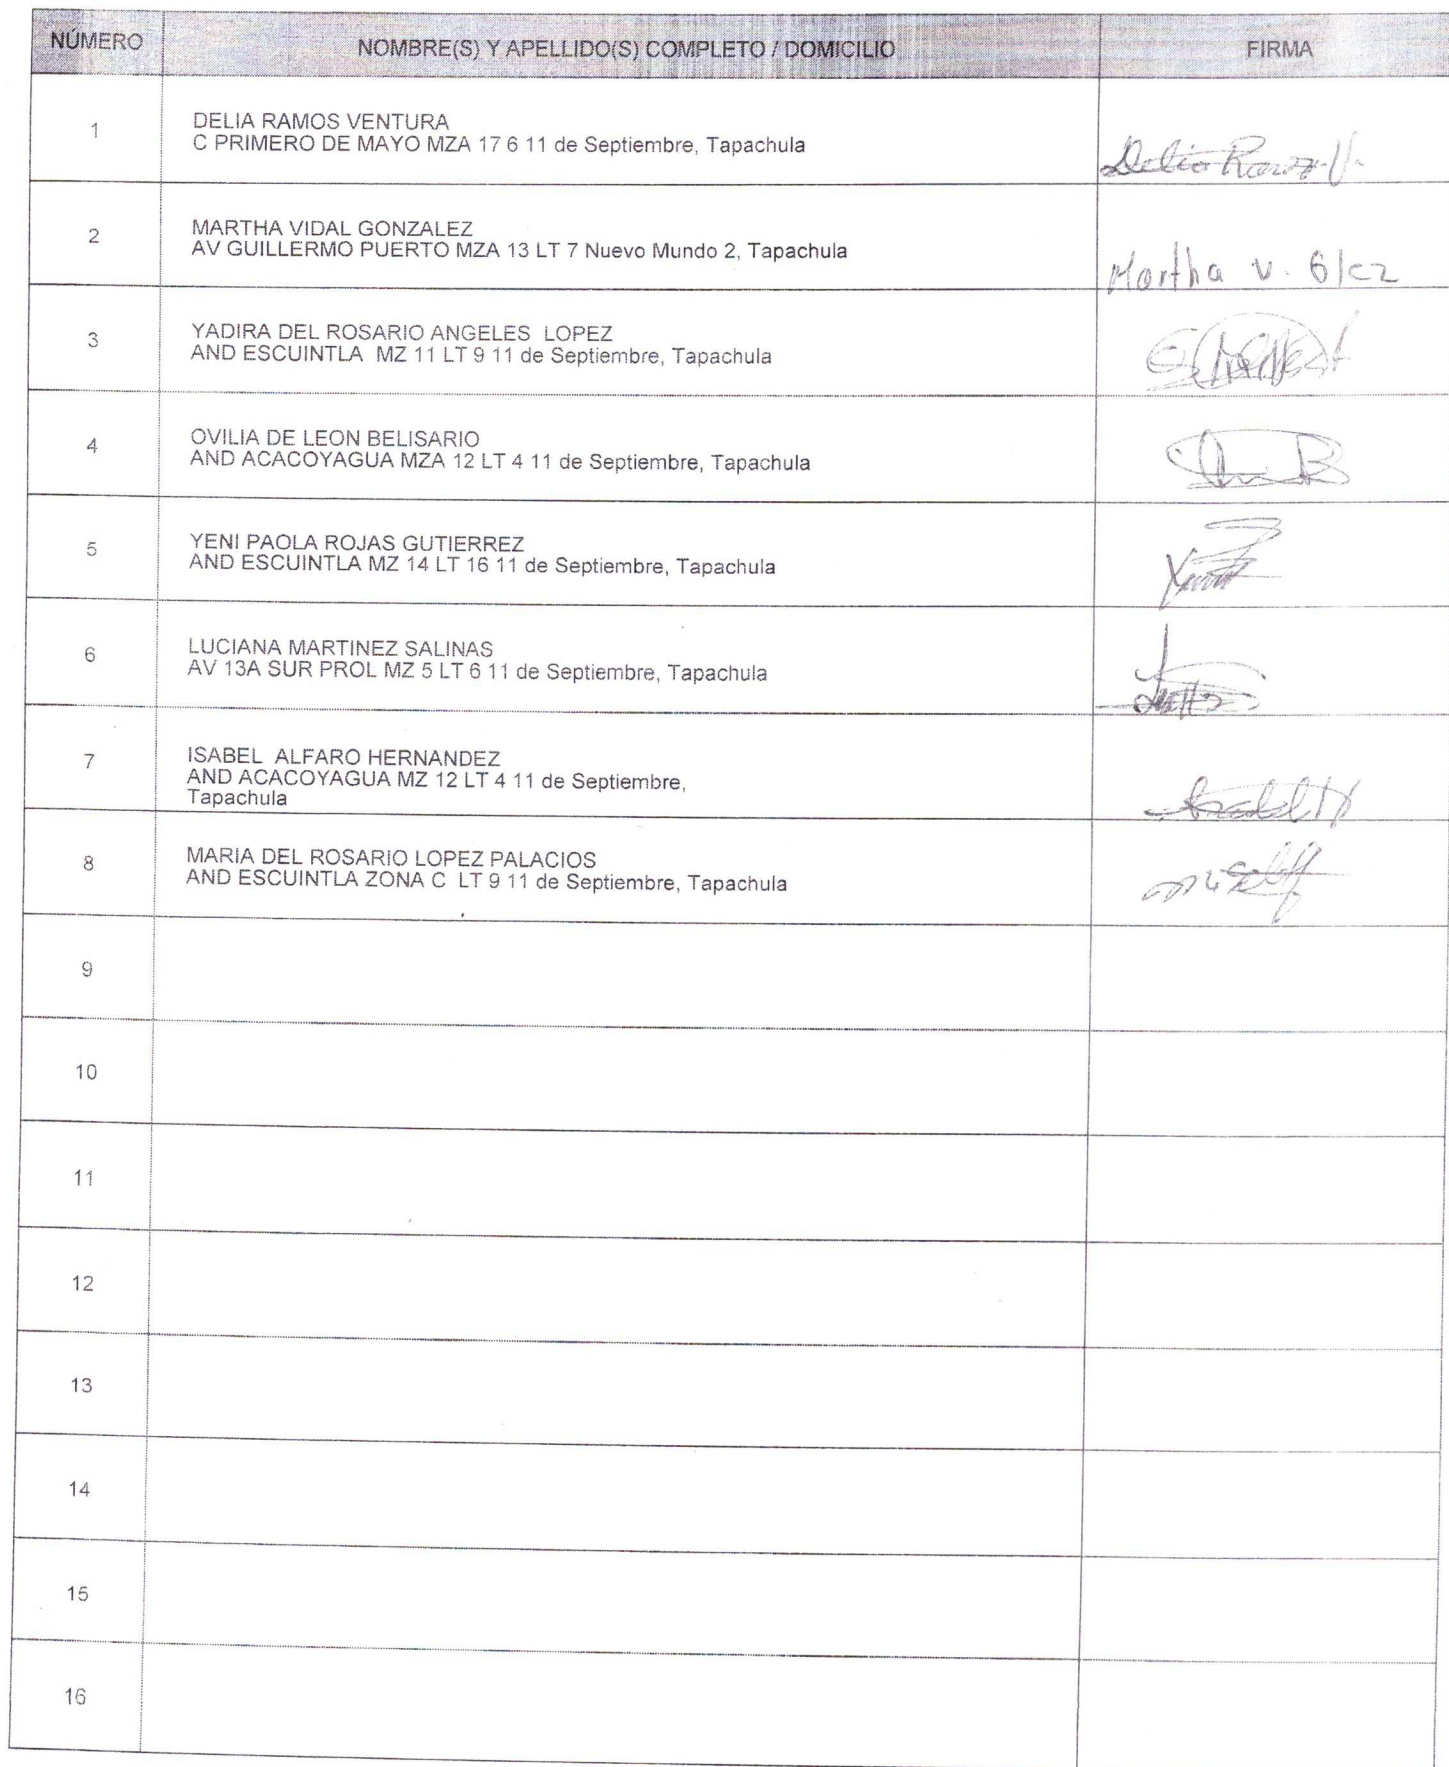 NÚMERO NOMBRE(S) Y APELLIDO(S) COMPLETO / DOMICILIO FIRMA
1 DELIA RAMOS VENTURA
C PRIMERO DE MAYO MZA 17 6 11 de Septiembre, Tapachula
Delia Ramoz V.
2 MARTHA VIDAL GONZALEZ
AV GUILLERMO PUERTO MZA 13 LT 7 Nuevo Mundo 2, Tapachula
Martha v. Glez
3 YADIRA DEL ROSARIO ANGELES LOPEZ
AND ESCUINTLA MZ 11 LT 9 11 de Septiembre, Tapachula
4 OVILIA DE LEON BELISARIO
AND ACACOYAGUA MZA 12 LT 4 11 de Septiembre, Tapachula
5 YENI PAOLA ROJAS GUTIERREZ
AND ESCUINTLA MZ 14 LT 16 11 de Septiembre, Tapachula
6 LUCIANA MARTINEZ SALINAS
AV 13A SUR PROL MZ 5 LT 6 11 de Septiembre, Tapachula
7 ISABEL ALFARO HERNANDEZ
AND ACACOYAGUA MZ 12 LT 4 11 de Septiembre,
Tapachula
8 MARIA DEL ROSARIO LOPEZ PALACIOS
AND ESCUINTLA ZONA C LT 9 11 de Septiembre, Tapachula
9
10
11
12
13
14
15
16